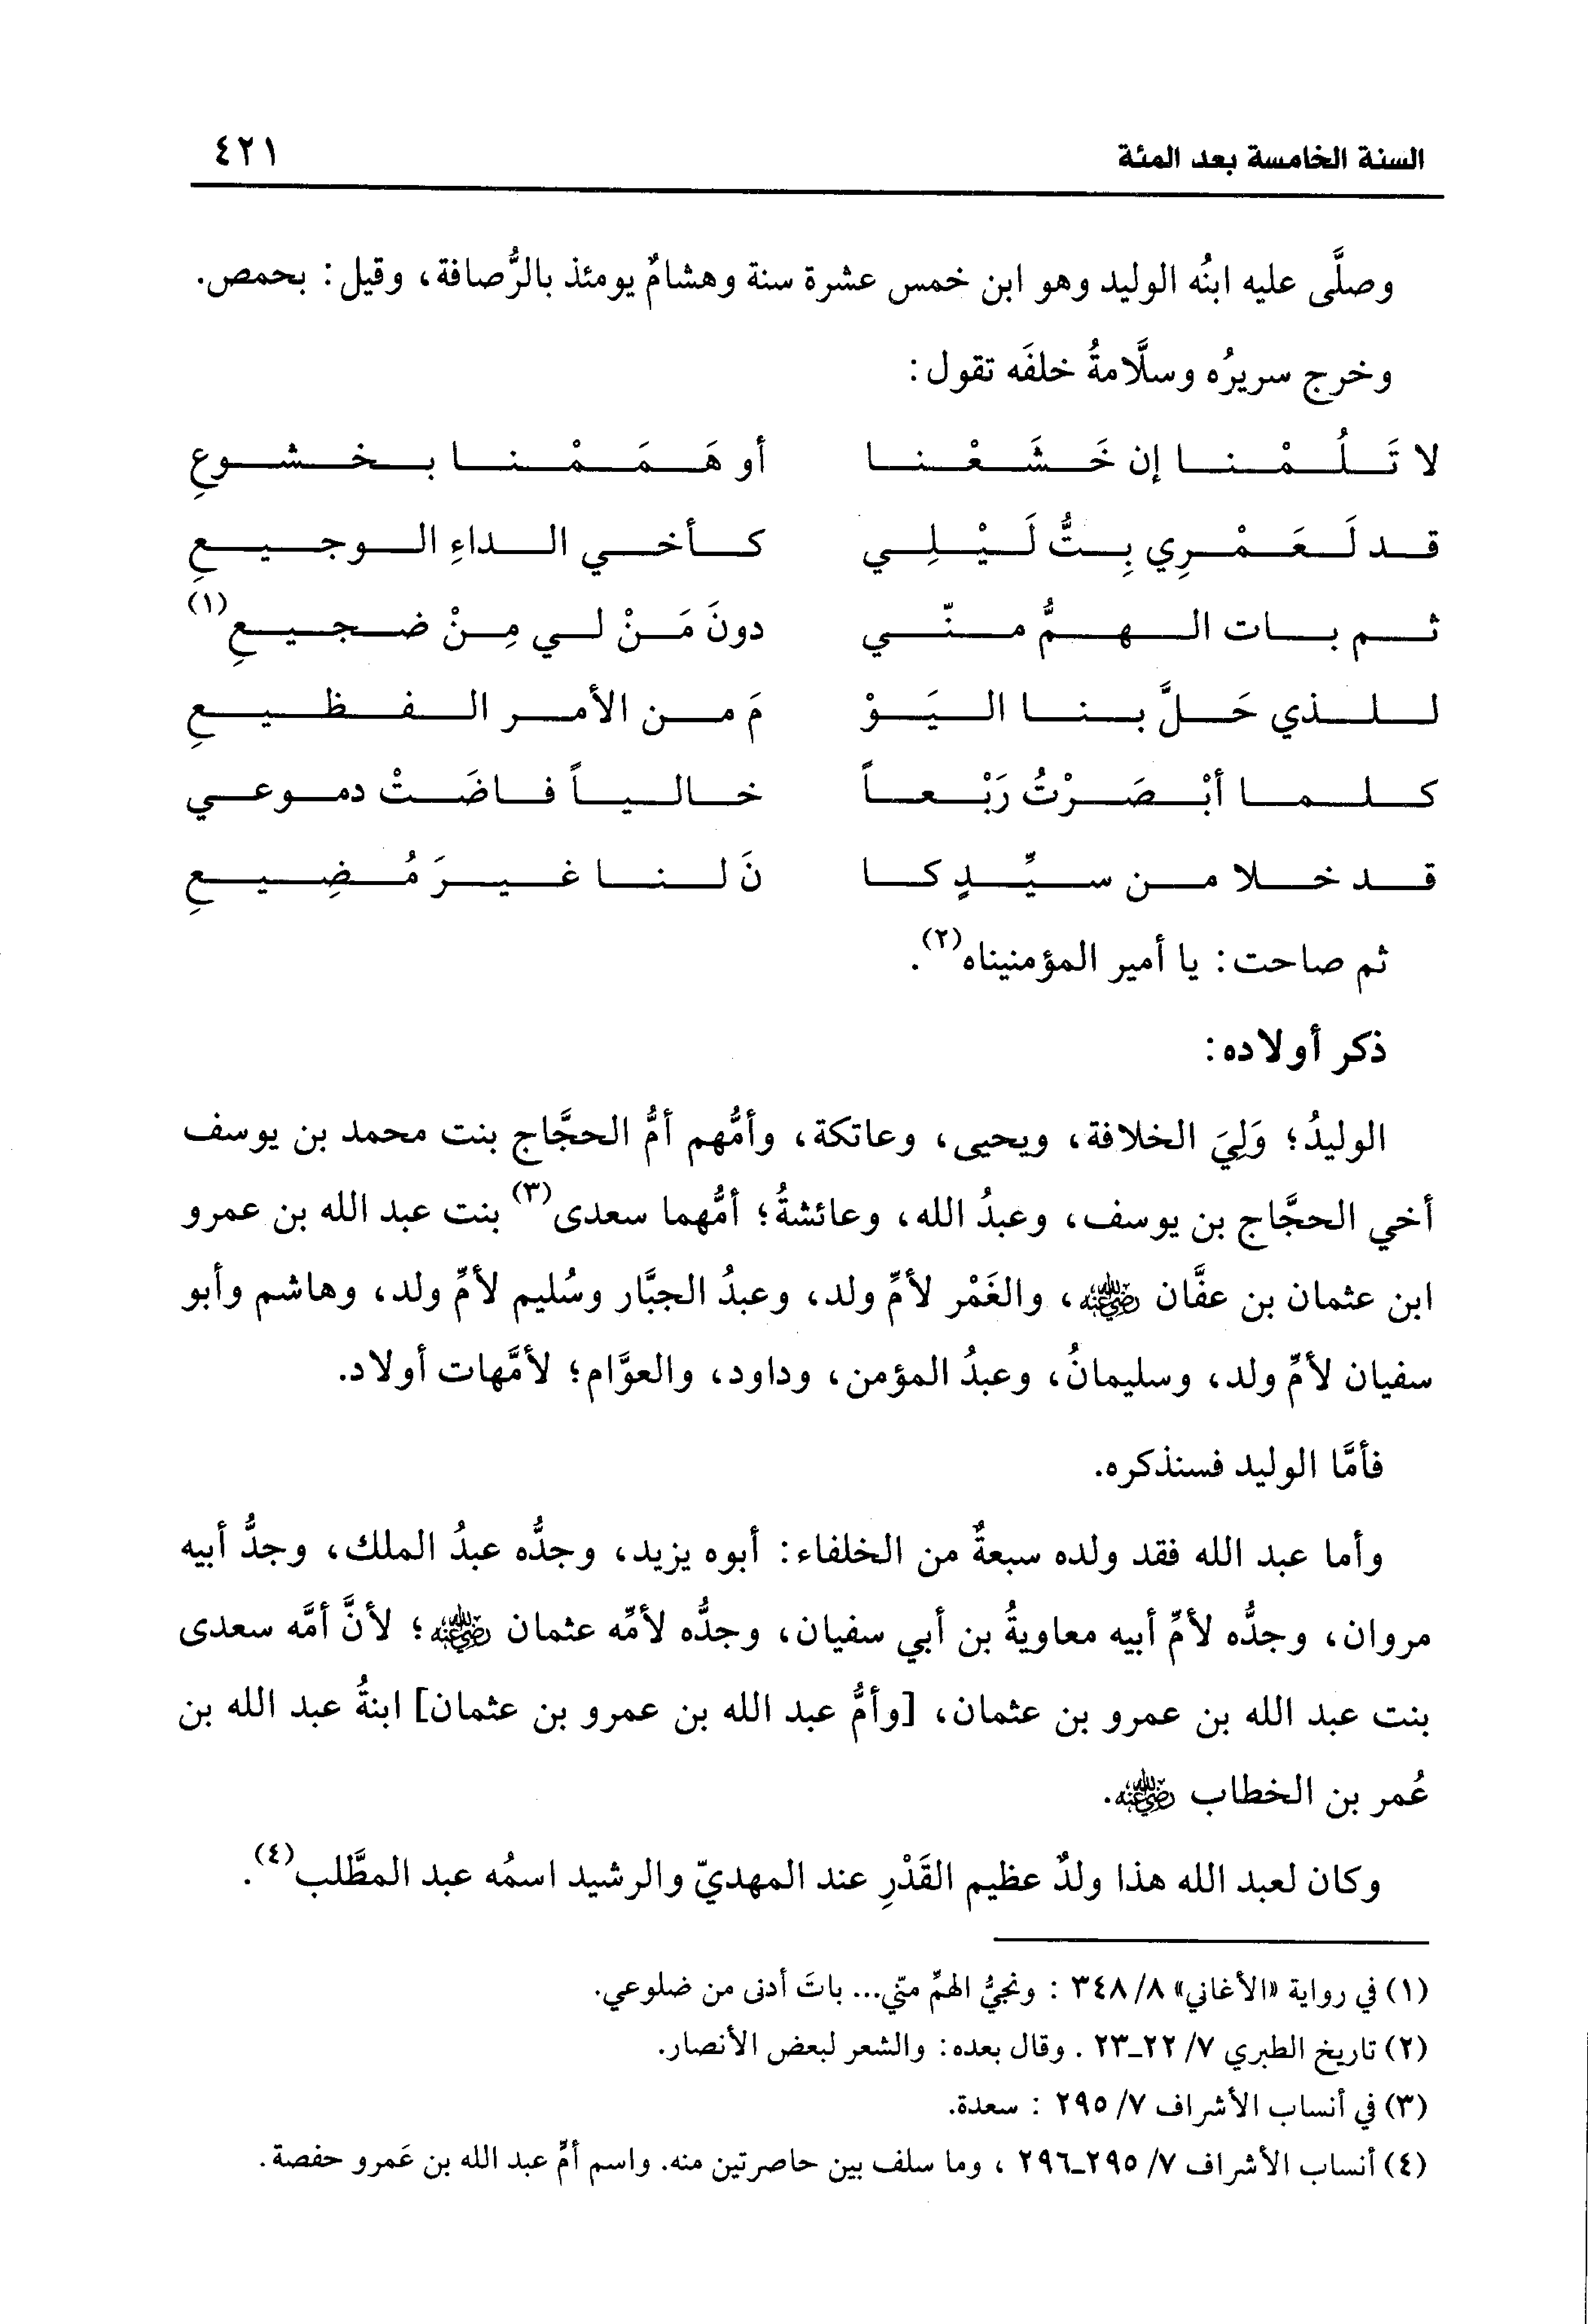 السنة الخامسة بعد المئة ٤٢١
وصلَّى عليه ابنُه الوليد وهو ابن خمس عشرة سنة وهشامٌ يومئذ بالرُّصافة، وقيل: بحمص.
وخرج سريرُه وسلَّامةُ خلفَه تقول:
لا تَلُمْنا إن خَشَعْنا أو هَمَمْنا بخشوعِ
قد لَعَمْرِي بِتُّ لَيْلِي كأخي الداءِ الوجيعِ
ثم بات الهمُّ منّي دونَ مَنْ لي مِنْ ضجيعِ(١)
للذي حَلَّ بنا اليَوْ مَ من الأمر الفظيعِ
كلما أبْصَرْتُ رَبْعاً خالياً فاضَتْ دموعي
قد خلا من سيِّدٍ كا نَ لنا غيرَ مُضِيعِ
ثم صاحت: يا أمير المؤمنيناه(٢).
ذكر أولاده:
الوليدُ؛ وَلِيَ الخلافة، ويحيى، وعاتكة، وأمُّهم أمُّ الحجَّاج بنت محمد بن يوسف
أخي الحجَّاج بن يوسف، وعبدُ الله، وعائشةُ؛ أمُّهما سعدى(٣) بنت عبد الله بن عمرو
ابن عثمان بن عفَّان رضي الله عنه، والغَمْر لأمِّ ولد، وعبدُ الجبَّار وسُليم لأمِّ ولد، وهاشم وأبو
سفيان لأمِّ ولد، وسليمانُ، وعبدُ المؤمن، وداود، والعوَّام؛ لأمَّهات أولاد.
فأمَّا الوليد فسنذكره.
وأما عبد الله فقد ولده سبعةٌ من الخلفاء: أبوه يزيد، وجدُّه عبدُ الملك، وجدُّ أبيه
مروان، وجدُّه لأمِّ أبيه معاويةُ بن أبي سفيان، وجدُّه لأمِّه عثمان رضي الله عنه؛ لأنَّ أمَّه سعدى
بنت عبد الله بن عمرو بن عثمان، [وأمُّ عبد الله بن عمرو بن عثمان] ابنةُ عبد الله بن
عُمر بن الخطاب رضي الله عنه.
وكان لعبد الله هذا ولدٌ عظيم القَدْرِ عند المهديّ والرشيد اسمُه عبد المطَّلب(٤).
(١) في رواية «الأغاني» ٨/ ٣٤٨ : ونجيُّ الهمِّ منّي... باتَ أدنى من ضلوعي.
(٢) تاريخ الطبري ٧/ ٢٢-٢٣ . وقال بعده: والشعر لبعض الأنصار.
(٣) في أنساب الأشراف ٧/ ٢٩٥ : سعدة.
(٤) أنساب الأشراف ٧/ ٢٩٥-٢٩٦ ، وما سلف بين حاصرتين منه. واسم أمِّ عبد الله بن عَمرو حفصة.